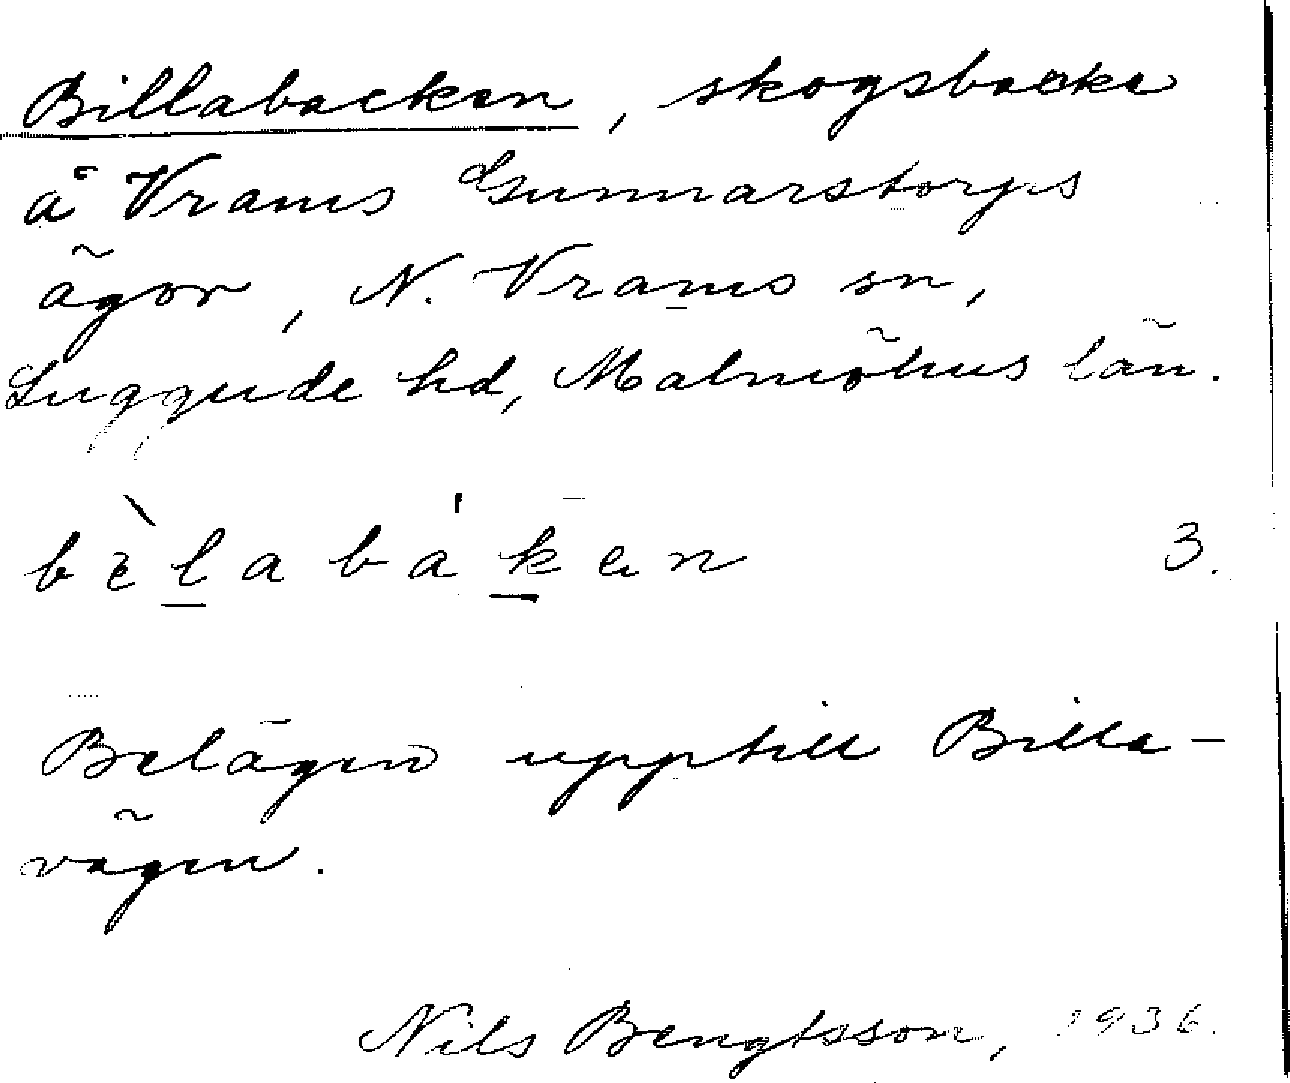 Billabacken, skogsbacke
å Vrams Gunnarstorps
ägor, N. Vrams sn,
Luggude hd, Malmöhus län.
bèlabákan 3.
Belägen upptill Billa-
vägen.
Nils Bengtsson, 1936.